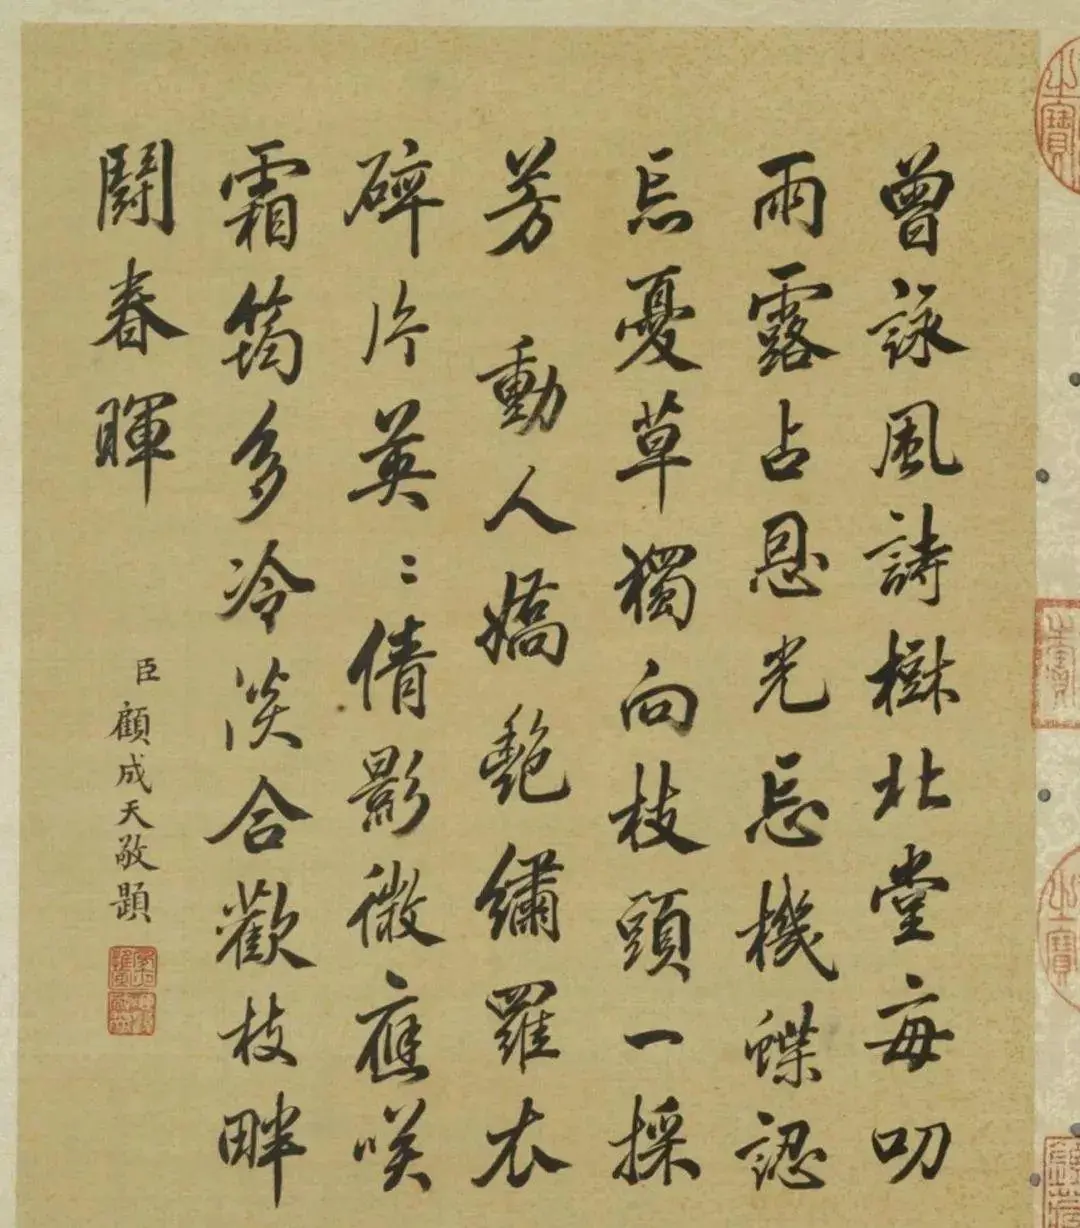 曾詠風詩樹北堂每叨
雨露占恩光忘機蝶認
忘憂草獨向枝頭一採
芳 動人嬌艷繡羅衣
碎片英〻倩影微應咲
霜筠多冷淡合歡枝畔
鬪春暉
臣顧成天敬題
之寶